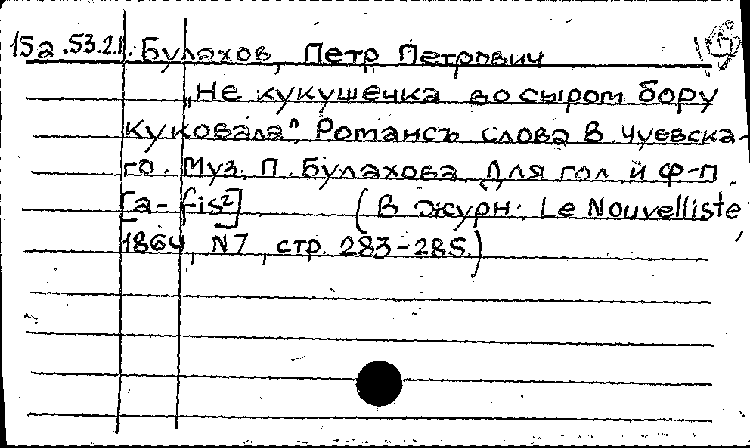 15а.53.21. Булахов, Петр Петрович
„Не кукушечка во сыром бору
куковала". Романсъ слова В. Чуевска-
го. Муз. П. Булахова. Для гол. и ф-п.
[a - fis²] (В журн: Le Nouvelliste,
1864, N7, стр. 283-285.)